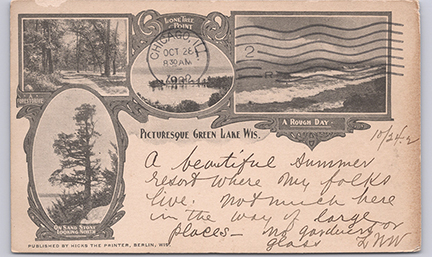 LONE TREE
POINT
CHICAGO, ILL.
OCT 26
8 30 AM
2
A
FOREST DRIVE
A ROUGH DAY
PICTURESQUE GREEN LAKE WIS.
10/24.2
A beautiful summer
resort where my folks
live. Not much here
in the way of large
places — no gardens or
glass
ON SAND STONE
LOOKING NORTH
PUBLISHED BY HICKS THE PRINTER, BERLIN, WIS.